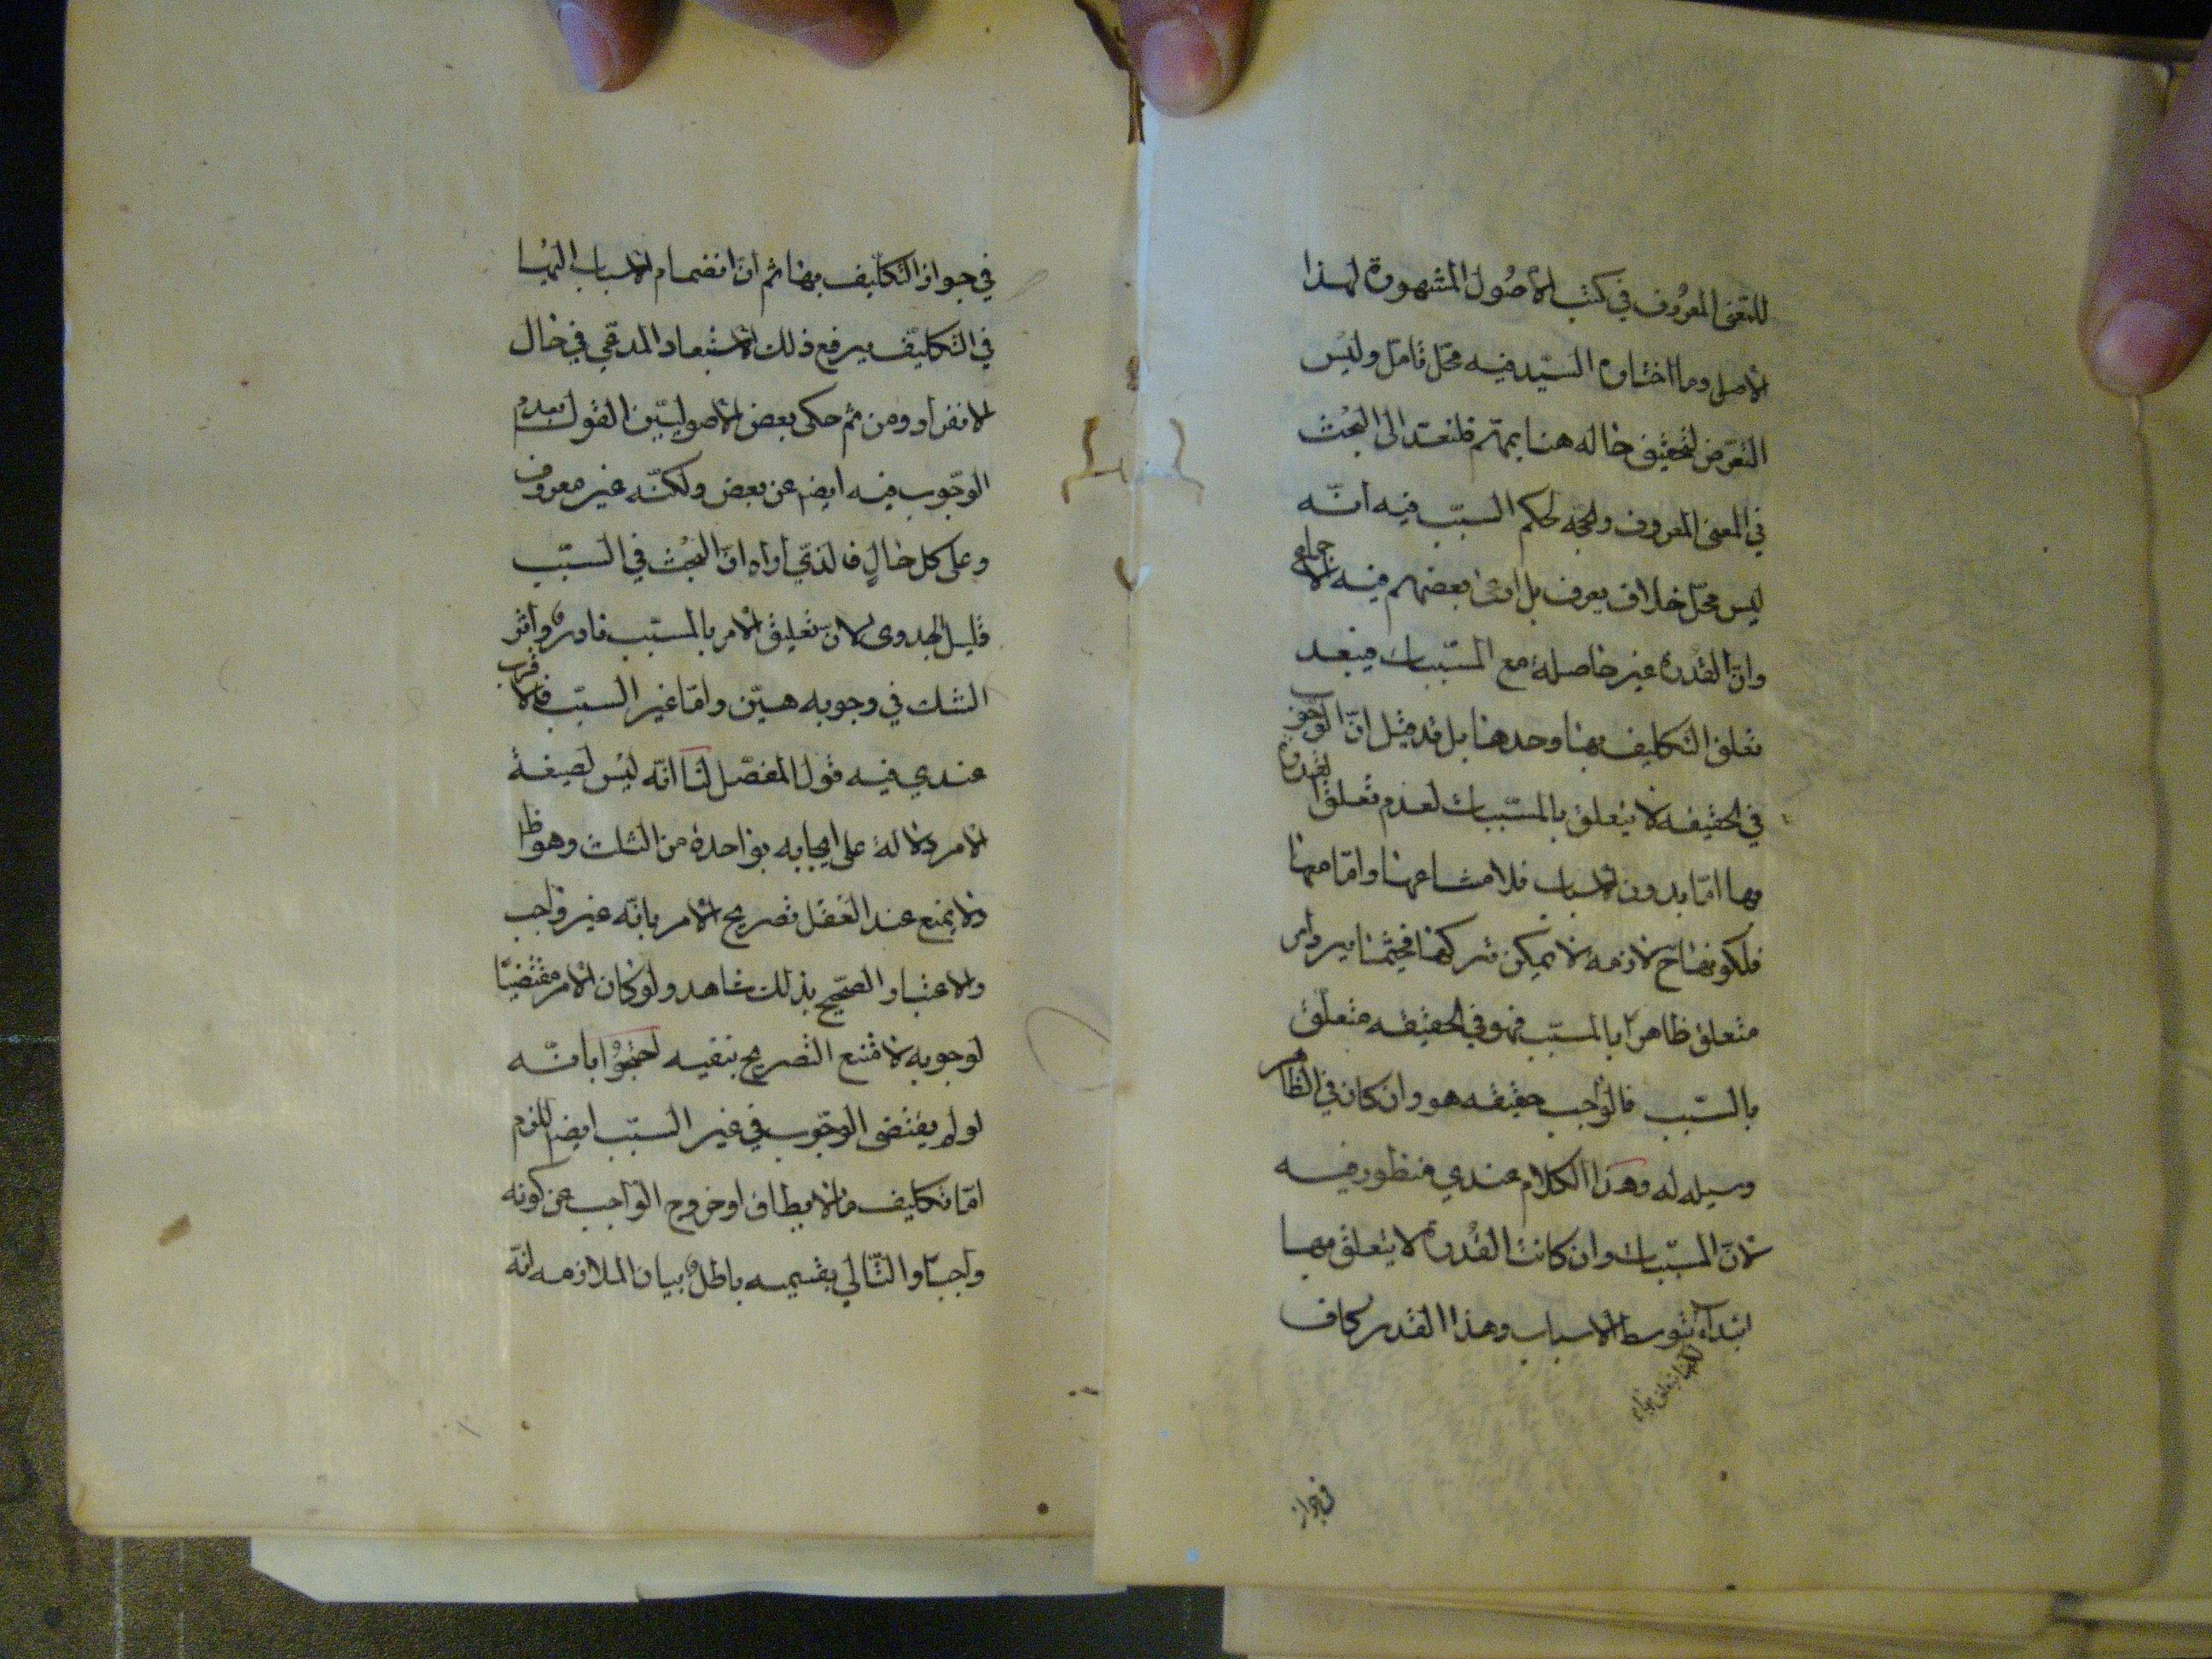 للمعنى المعروف في كتب الأصول المشهورة لهذا
الأصل وما اختاره السيد فيه محل تأمل وليس
التعرض لتحقيق حاله هنا بمهم فلنعد الى البحث
في المعنى المعروف والحجة لحكم السبب فيه انه
ليس محل خلاف يعرف بل ادعى بعضهم فيه الاجماع
وان القدرة غير حاصلة مع المسببات فيبعد
تعلق التكليف بها وحدها بل قد قيل ان الوجوب
في الحقيقة لا يتعلق بالمسببات لعدم تعلق القدرة
بها اما بدون الأسباب فلامتناعها واما معها
فلكونها ح لازمة لا يمكن تركها فحيثما يرد امر
متعلق ظاهرا بالمسبب فهو في الحقيقة متعلق
بالسبب فالواجب حقيقة هو وان كان في الظاهر
وسيلة له وهذا الكلام عندي منظور فيه
لأن المسببات وان كانت القدرة لا يتعلق بها
ابتداء بتوسط الاسباب وهذا القدر كاف
لكنها يتعلق بها
في جواز
في جواز التكليف بها ثم ان انضمام الأسباب اليها
في التكليف يرفع ذلك الاستبعاد المدعى في حال
الانفراد ومن ثم حكى بعض الأصوليين القول بعدم
الوجوب فيه ايضا عن بعض ولكنه غير معروف
وعلى كل حال فالذي اراه ان البحث في السبب
قليل الجدوى لان تعليق الأمر بالمسبب نادر واثر
الشك في وجوبه هين واما غير السبب فالاقرب
عندي فيه قول المفصل لنا انه ليس لصيغة
الأمر دلالة على ايجابه بواحدة من الثلث وهو ظ
ولا يمنع عند العقل تصريح الأمر بانه غير واجب
والاعتبار الصحيح بذلك شاهد ولو كان الأمر مقتضيا
لوجوبه لامتنع التصريح بنفيه احتجوا بانه
لو لم يقتضى الوجوب في غير السبب ايضا للزم
اما تكليف ما لا يطاق او خروج الواجب عن كونه
واجبا والتالي بقسيمه باطل بيان الملازمة انه